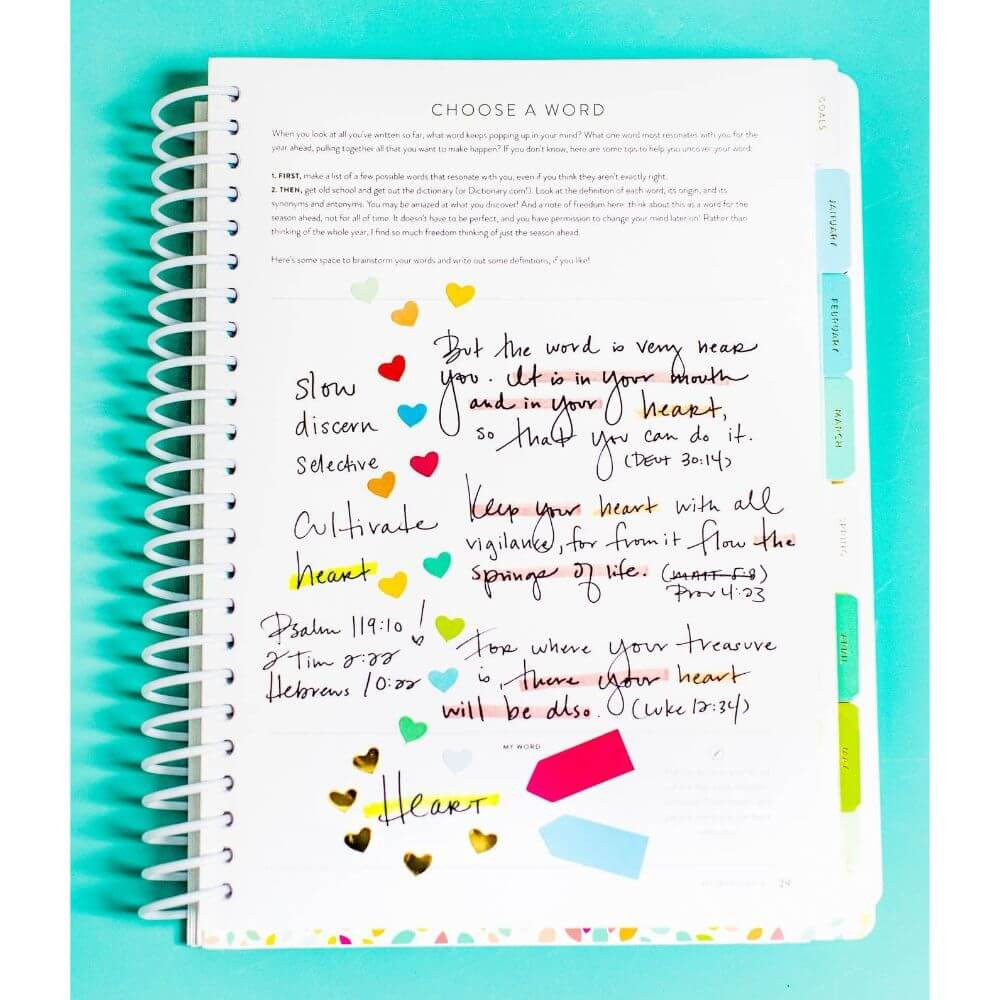 CHOOSE A WORD
When you look at all you've written so far, what word keeps popping up in your mind? What one word most resonates with you for the
year ahead, pulling together all that you want to make happen? If you don't know, here are some tips to help you uncover your word:
1. FIRST, make a list of a few possible words that resonate with you, even if you think they aren't exactly right.
2. THEN, get old school and get out the dictionary (or Dictionary.com!). Look at the definition of each word, its origin, and its
synonyms and antonyms. You may be amazed at what you discover! And a note of freedom here: think about this as a word for the
season ahead, not for all of time. It doesn't have to be perfect, and you have permission to change your mind later on! Rather than
thinking of the whole year, I find so much freedom thinking of just the season ahead.
Here's some space to brainstorm your words and write out some definitions, if you like!
Slow
discern
selective
Cultivate
heart
Psalm 119:10 !
2 Tim 2:22
Hebrews 10:22
But the word is very near
you. It is in your mouth
and in your heart,
so that you can do it.
(Deut 30:14)
Keep your heart with all
vigilance, for from it flow the
springs of life. (Matt 5:8)
Prov 4:23
For where your treasure
is, there your heart
will be also. (Luke 12:34)
MY WORD
Heart
29
GOALS
JANUARY
FEBRUARY
MARCH
SPRING
APRIL
MAY